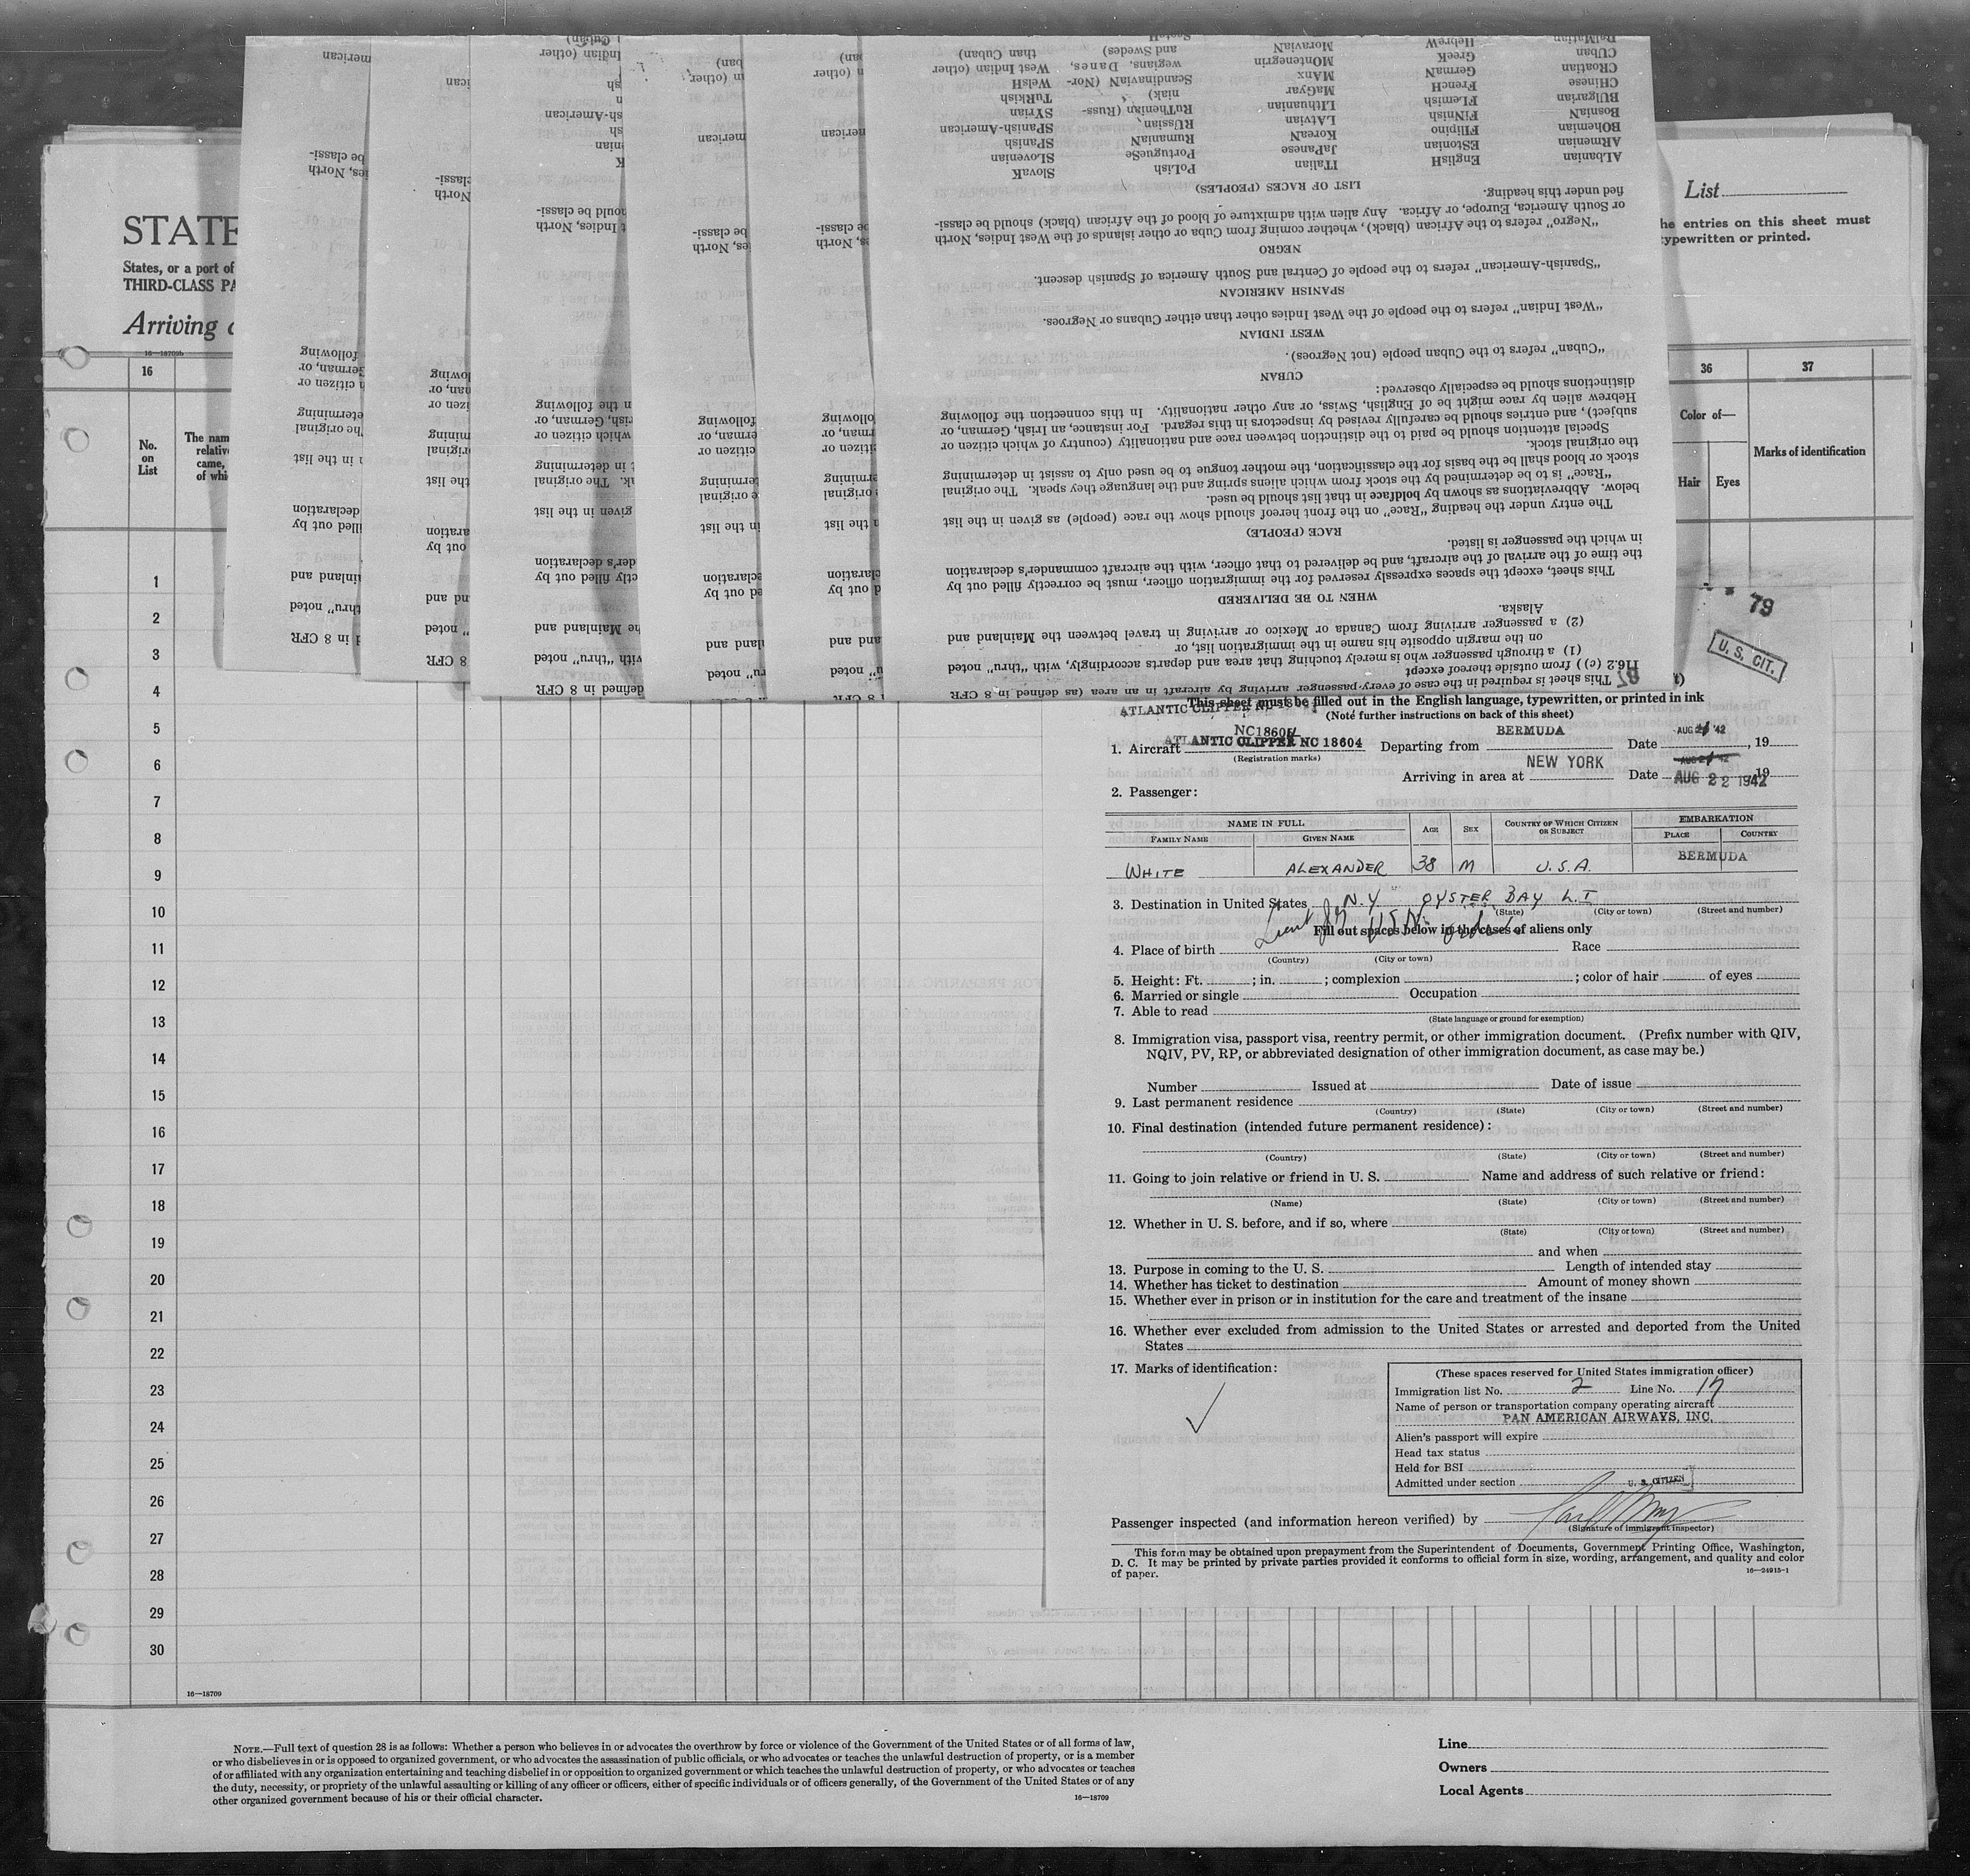 American
Cuban)
Indian (other
ican
ban)
n (other
an)
n (other
BalMatian
CUban
CRoatian
CHinese
BUlgarian
BosniaN
BOhemian
ARmenian
ALbanian
HebreW
GreeK
GermaN
FrencH
FLemish
FiNnish
FIlipino
EStonian
EnglisH
MoraviaN
MOntenegrin
MAnx
MaGyar
LIthuanian
LAtvian
KoreaN
JaPanese
ITalian
ScotcH
and Swedes)
wegians, Danes,
ScandinaviaN (Nor-
niak)
RuThenian (Russ-
RUssian
RumaniaN
PortugueSe
PoLish
than Cuban)
West Indian (other
WelsH
TuRkish
SYrian
SPanish-American
SPanish
SLovenian
SlovaK
LIST OF RACES (PEOPLES)
fied under this heading.
or South America, Europe, or Africa. Any alien with admixture of blood of the African (black) should be classi-
"Negro" refers to the African (black), whether coming from Cuba or other islands of the West Indies, North
NEGRO
"Spanish-American" refers to the people of Central and South America of Spanish descent.
SPANISH AMERICAN
"West Indian" refers to the people of the West Indies other than either Cubans or Negroes.
WEST INDIAN
"Cuban" refers to the Cuban people (not Negroes).
CUBAN
distinctions should be especially observed:
Hebrew alien by race might be of English, Swiss, or any other nationality. In this connection the following
subject), and entries should be carefully revised by inspectors in this regard. For instance, an Irish, German, or
Special attention should be paid to the distinction between race and nationality (country of which citizen or
the original stock.
stock or blood shall be the basis for the classification, the mother tongue to be used only to assist in determining
"Race" is to be determined by the stock from which aliens spring and the language they speak. The original
below. Abbreviations as shown by boldface in that list should be used.
The entry under the heading "Race" on the front hereof should show the race (people) as given in the list
RACE (PEOPLE)
in which the passenger is listed.
the time of the arrival of the aircraft, and be delivered to that officer, with the aircraft commander's declaration
This sheet, except the spaces expressly reserved for the immigration officer, must be correctly filled out by
WHEN TO BE DELIVERED
Alaska.
(2) a passenger arriving from Canada or Mexico or arriving in travel between the Mainland and
on the margin opposite his name in the immigration list, or
(1) a through passenger who is merely touching that area and departs accordingly, with "thru" noted
116.2 (c)) from outside thereof except
This sheet is required in the case of every passenger arriving by aircraft in an area (as defined in 8 CFR
STATE
States, or a port of
THIRD-CLASS PA
Arriving
16—18709b
List
he entries on this sheet must
typewritten or printed.
16
36
37
No.
on
List
The nam
relative
came,
of whi
Color of—
Hair
Eyes
Marks of identification
1
2
3
4
5
6
7
8
9
10
11
12
13
14
15
16
17
18
19
20
21
22
23
24
25
26
27
28
29
30
79
U. S. CIT.
This sheet must be filled out in the English language, typewritten, or printed in ink
ATLANTIC CLIPPER
(Note further instructions on back of this sheet)
NC18604
1. Aircraft ATLANTIC CLIPPER NC 18604 Departing from BERMUDA Date AUG 21 '42, 19
(Registration marks)
Arriving in area at NEW YORK Date AUG 22 1942 19
2. Passenger:
NAME IN FULL
FAMILY NAME
GIVEN NAME
AGE
SEX
COUNTRY OF WHICH CITIZEN OR SUBJECT
EMBARKATION
PLACE
COUNTRY
WHITE ALEXANDER 38 M U.S.A. BERMUDA
3. Destination in United States N.Y OYSTER BAY L.I
(State) (City or town) (Street and number)
Lieut jg USN
Fill out spaces below in the cases of aliens only
4. Place of birth Race
(Country) (City or town)
5. Height: Ft. ; in. ; complexion ; color of hair of eyes
6. Married or single Occupation
7. Able to read
(State language or ground for exemption)
8. Immigration visa, passport visa, reentry permit, or other immigration document. (Prefix number with QIV,
NQIV, PV, RP, or abbreviated designation of other immigration document, as case may be.)
Number Issued at Date of issue
9. Last permanent residence
(Country) (State) (City or town) (Street and number)
10. Final destination (intended future permanent residence):
(Country) (State) (City or town) (Street and number)
11. Going to join relative or friend in U. S. Name and address of such relative or friend:
(Name) (State) (City or town) (Street and number)
12. Whether in U. S. before, and if so, where
(State) (City or town) (Street and number)
and when
13. Purpose in coming to the U. S. Length of intended stay
14. Whether has ticket to destination Amount of money shown
15. Whether ever in prison or in institution for the care and treatment of the insane
16. Whether ever excluded from admission to the United States or arrested and deported from the United
States
17. Marks of identification:
(These spaces reserved for United States immigration officer)
Immigration list No. 2 Line No. 17
Name of person or transportation company operating aircraft
PAN AMERICAN AIRWAYS, INC.
Alien's passport will expire
Head tax status
Held for BSI
Admitted under section U. S. CITIZEN
Passenger inspected (and information hereon verified) by
(Signature of immigrant inspector)
This form may be obtained upon prepayment from the Superintendent of Documents, Government Printing Office, Washington,
D. C. It may be printed by private parties provided it conforms to official form in size, wording, arrangement, and quality and color
of paper.
16—24913-1
16—18709
NOTE.—Full text of question 28 is as follows: Whether a person who believes in or advocates the overthrow by force or violence of the Government of the United States or of all forms of law,
or who disbelieves in or is opposed to organized government, or who advocates the assassination of public officials, or who advocates or teaches the unlawful destruction of property, or is a member
of or affiliated with any organization entertaining and teaching disbelief in or opposition to organized government or which teaches the unlawful destruction of property, or who advocates or teaches
the duty, necessity, or propriety of the unlawful assaulting or killing of any officer or officers, either of specific individuals or of officers generally, of the Government of the United States or of any
other organized government because of his or their official character.
16—18709
Line
Owners
Local Agents